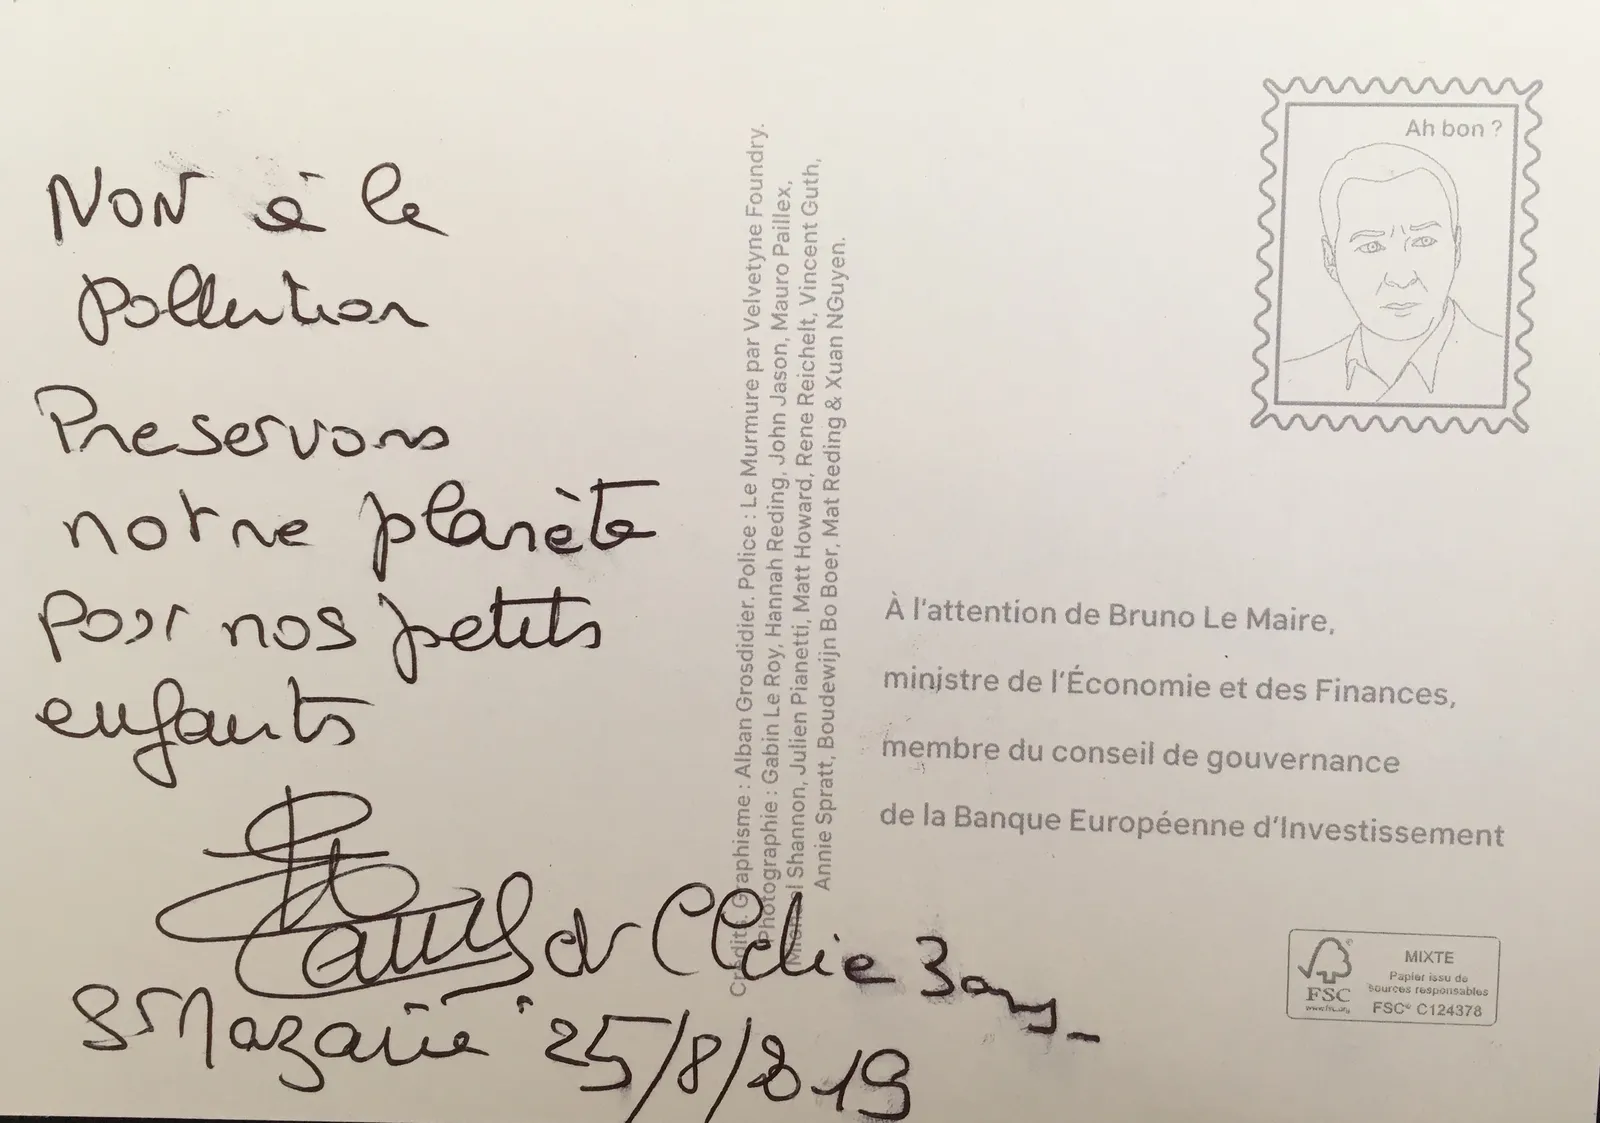 NON à la
pollution
Preservons
notre planète
pour nos petits
enfants
et
3 ans
St Nazaire 25/8/2019
Crédits. Graphisme : Alban Grosdidier. Police : Le Murmure par Velvetyne Foundry.
Photographie : Gabin Le Roy, Hannah Reding, John Jason, Mauro Paillex,
Shannon, Julien Pianetti, Matt Howard, Rene Reichelt, Vincent Guth,
Annie Spratt, Boudewijn Bo Boer, Mat Reding & Xuan NGuyen.
Ah bon ?
À l'attention de Bruno Le Maire,
ministre de l'Économie et des Finances,
membre du conseil de gouvernance
de la Banque Européenne d'Investissement
FSC
www.fsc.org
MIXTE
Papier issu de
sources responsables
FSC® C124378